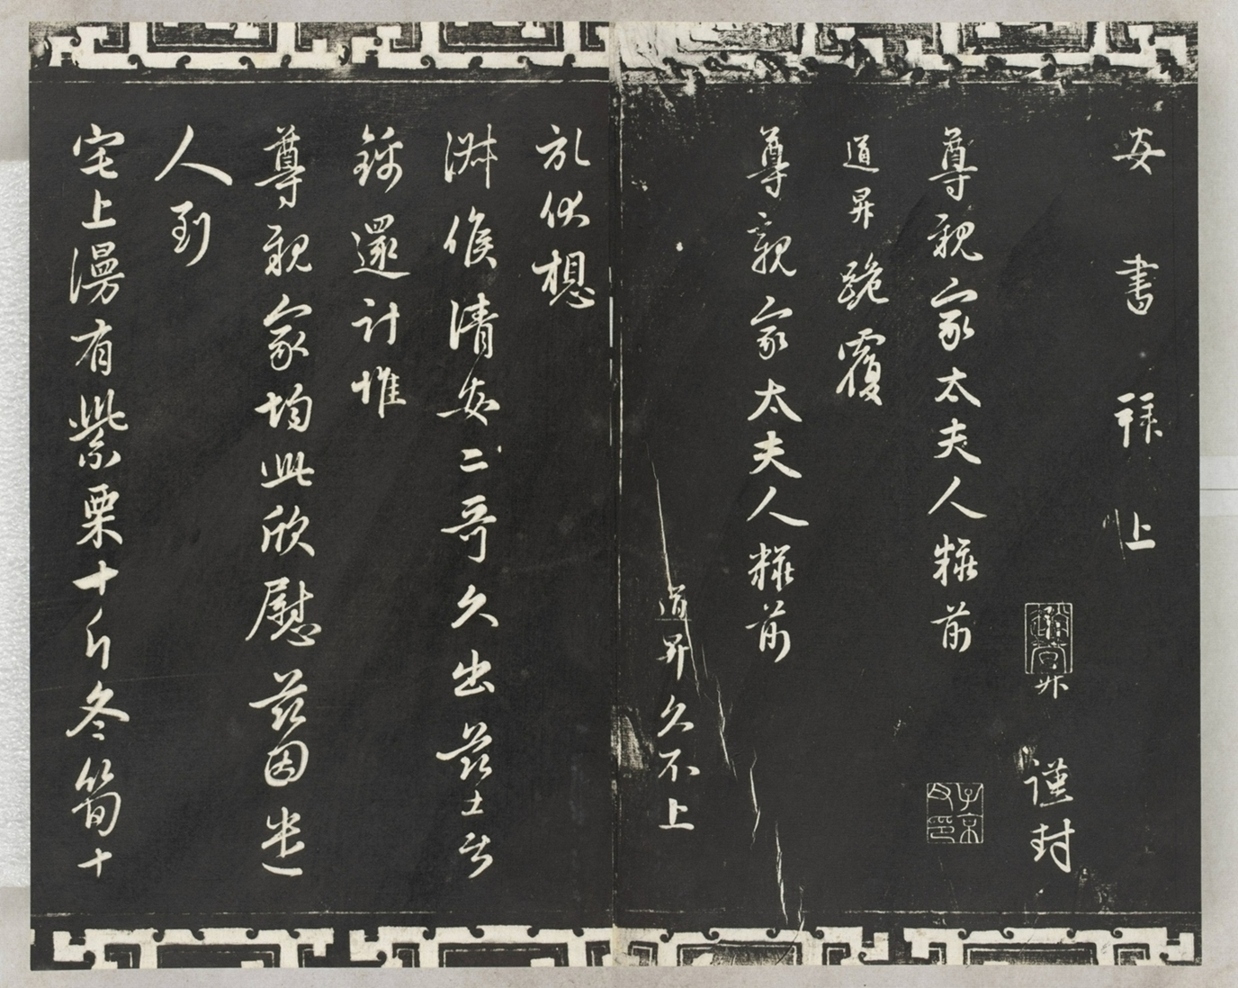 安書拜上
昇謹封
尊親家太夫人粧前
道昇跪覆
尊親家太夫人粧前
道昇久不上
伏想
候清安二哥久出茲
錦還計惟
尊親家均此欣慰茲因
人到
宅上漫有紫栗十斤冬筍十